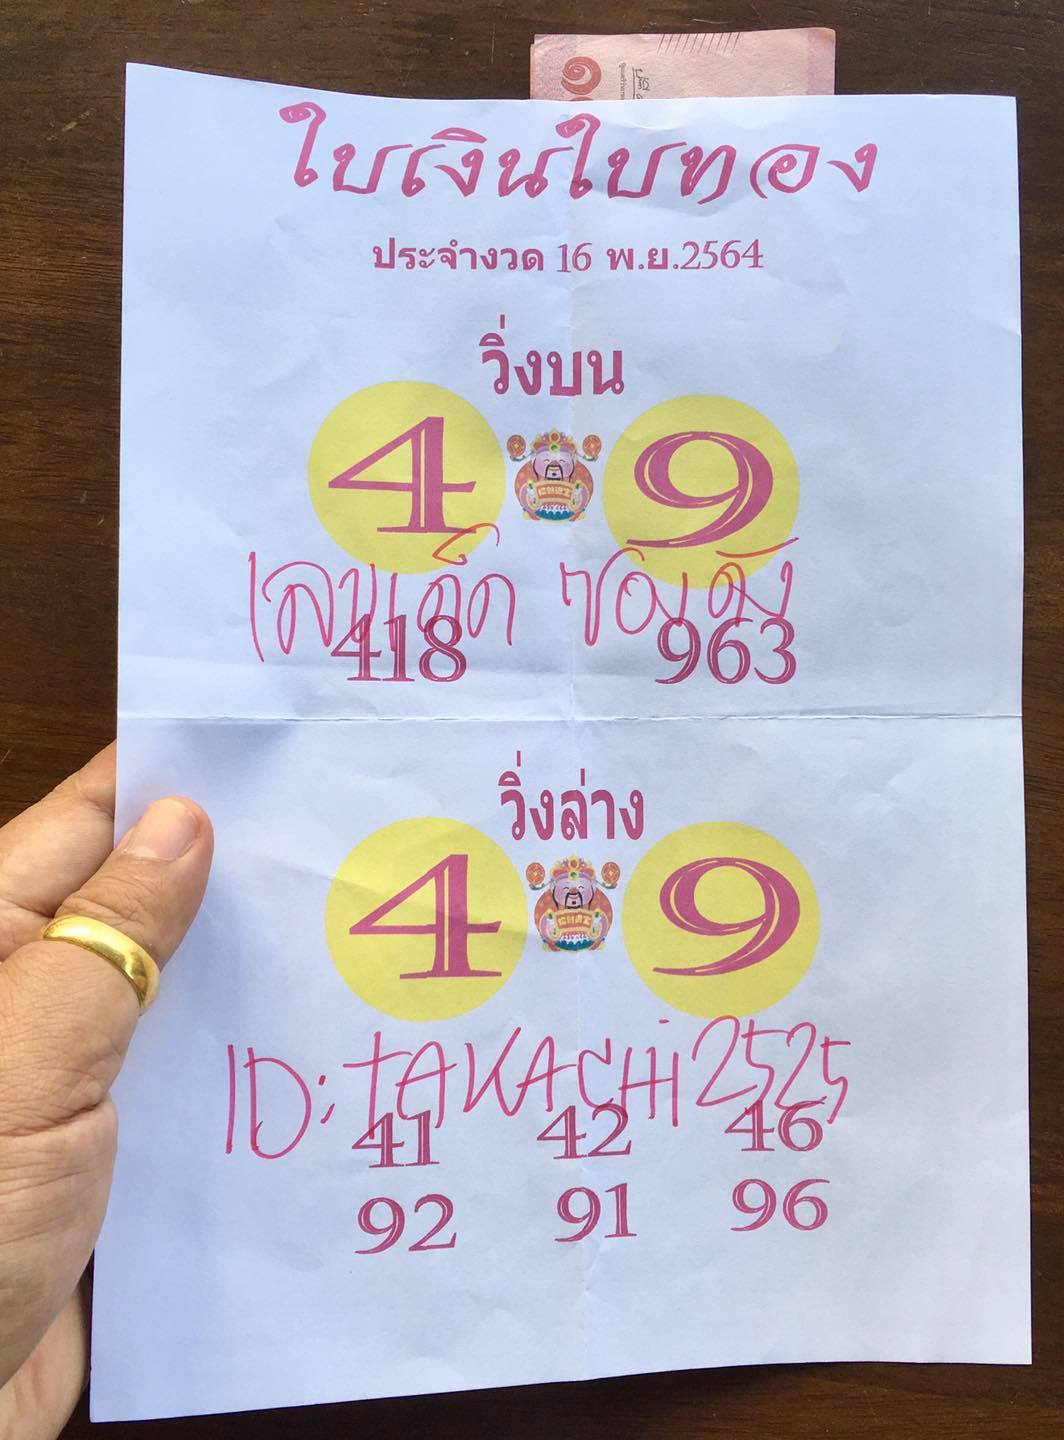 ใบเงินใบทอง
ประจำงวด 16 พ.ย.2564
วิ่งบน
4 9
เลขเด็ด ซองดัง
418 963
วิ่งล่าง
4 9
ID: TAKACHI2525
41 42 46
92 91 96